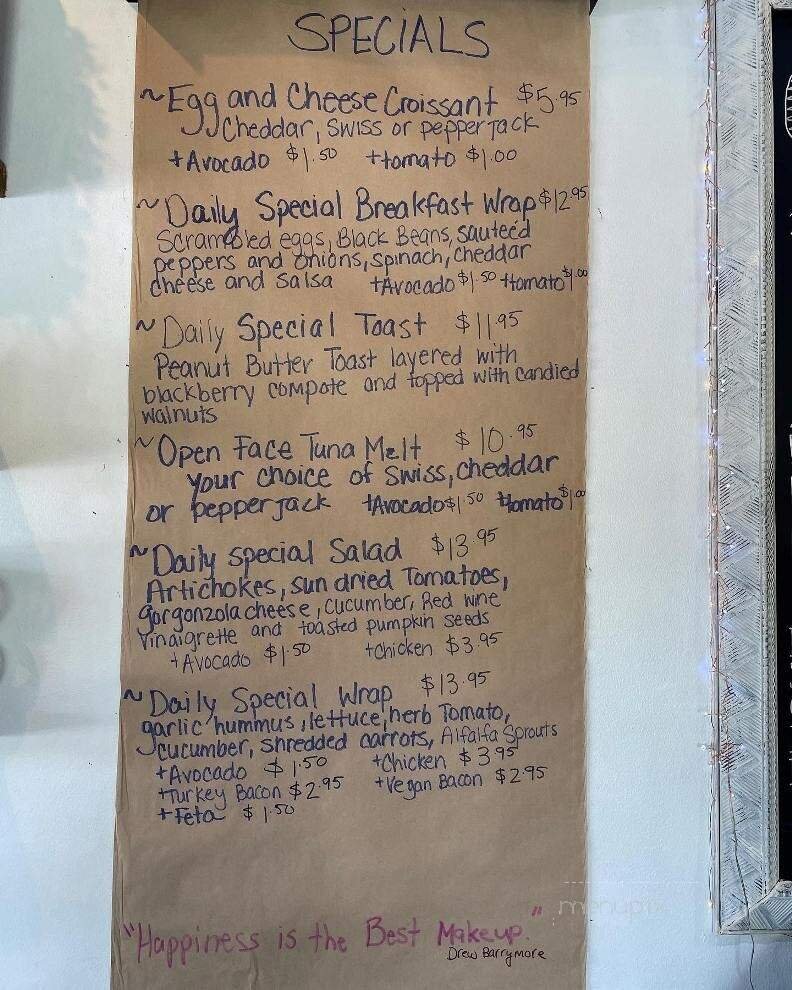 SPECIALS
~Egg and Cheese Croissant $5.95
Cheddar, Swiss or pepper jack
+Avocado $1.50 +tomato $1.00
~Daily Special Breakfast Wrap $12.95
Scrambled eggs, Black Beans, sauteéd
peppers and onions, spinach, cheddar
cheese and salsa +Avocado $1.50 +tomato $1.00
~Daily Special Toast $11.95
Peanut Butter Toast layered with
blackberry compote and topped with candied
walnuts
~Open Face Tuna Melt $10.95
your choice of Swiss, cheddar
or pepperjack +Avocado $1.50 +tomato $1.00
~Daily special Salad $13.95
Artichokes, sun dried Tomatoes,
gorgonzola cheese, cucumber, Red wine
vinaigrette and toasted pumpkin seeds
+Avocado $1.50 +chicken $3.95
~Daily Special Wrap $13.95
garlic hummus, lettuce, herb Tomato,
cucumber, shredded carrots, Alfalfa Sprouts
+Avocado $1.50 +Chicken $3.95
+Turkey Bacon $2.95 +Vegan Bacon $2.95
+Feta $1.50
"Happiness is the Best Makeup."
Drew Barrymore
menupix